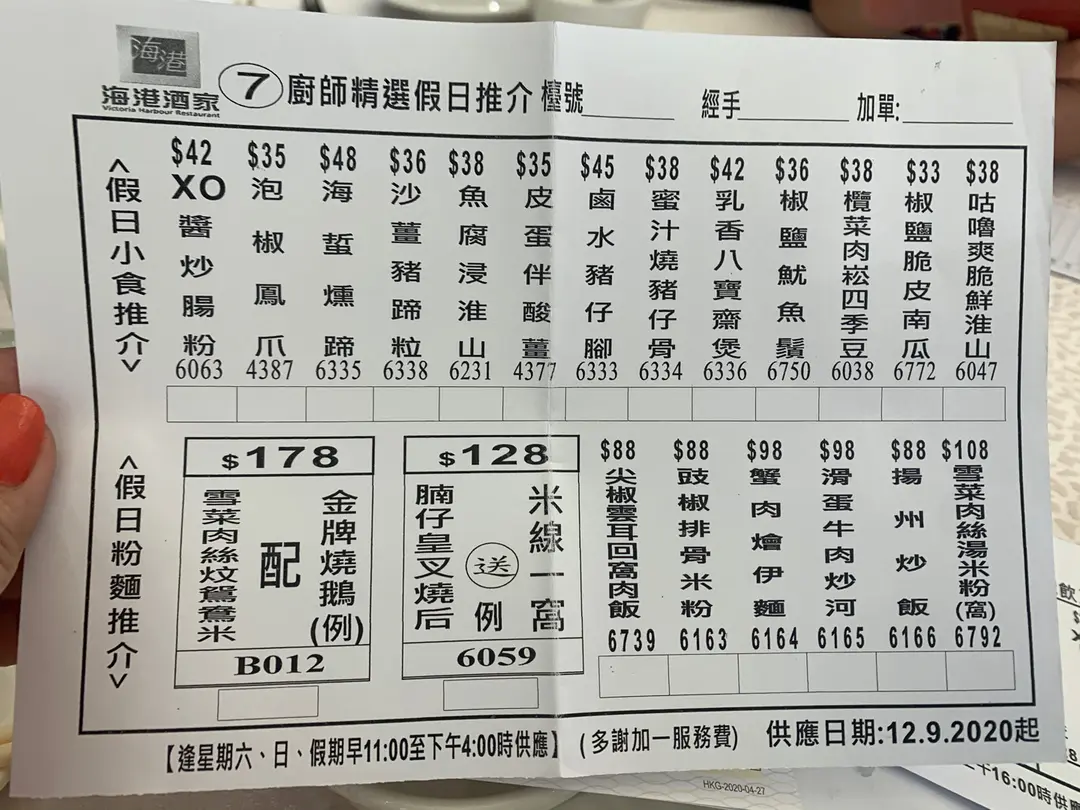 海港
海港酒家
Victoria Harbour Restaurant
7 廚師精選假日推介 檯號______ 經手______ 加單:______
<假日小食推介>
$42
XO醬炒腸粉
6063
$35
泡椒鳳爪
4387
$48
海蜇燻蹄
6335
$36
沙薑豬蹄粒
6338
$38
魚腐浸淮山
6231
$35
皮蛋伴酸薑
4377
$45
鹵水豬仔腳
6333
$38
蜜汁燒豬仔骨
6334
$42
乳香八寶齋煲
6336
$36
椒鹽魷魚鬚
6750
$38
欖菜肉崧四季豆
6038
$33
椒鹽脆皮南瓜
6772
$38
咕嚕爽脆鮮淮山
6047
<假日粉麵推介>
$178
金牌燒鵝(例)
配
雪菜肉絲炆鴛鴦米
B012
$128
米線一窩
送例
腩仔皇叉燒后
6059
$88
尖椒雲耳回窩肉飯
6739
$88
豉椒排骨米粉
6163
$98
蟹肉燴伊麵
6164
$98
滑蛋牛肉炒河
6165
$88
揚州炒飯
6166
$108
雪菜肉絲湯米粉(窩)
6792
【逢星期六、日、假期早11:00至下午4:00時供應】 (多謝加一服務費) 供應日期:12.9.2020起
HKG-2020-04-27